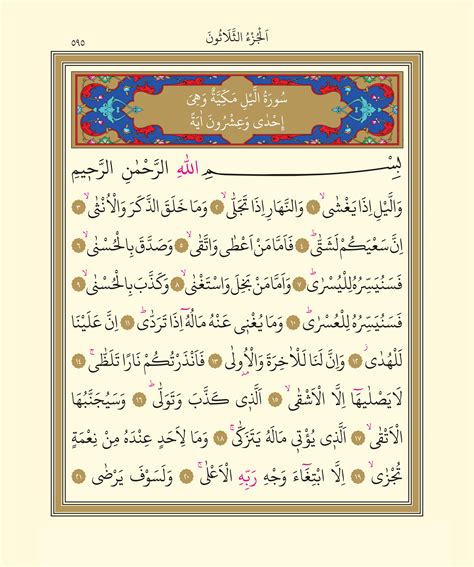 اَلْجُزْءُ الثَّلَاثُونَ
٥٩٥
سُورَةُ الَّيْلِ مَكِّيَّةٌ وَهِيَ
اِحْدٰى وَعِشْرُونَ اٰيَةً
بِسْمِ اللّٰهِ الرَّحْمٰنِ الرَّحِيمِ
وَالَّيْلِ اِذَا يَغْشٰىۙ ﴿١﴾ وَالنَّهَارِ اِذَا تَجَلّٰىۙ ﴿٢﴾ وَمَا خَلَقَ الذَّكَرَ وَالْاُنْثٰىۙ ﴿٣﴾
اِنَّ سَعْيَكُمْ لَشَتّٰىۜ ﴿٤﴾ فَاَمَّا مَنْ اَعْطٰى وَاتَّقٰىۙ ﴿٥﴾ وَصَدَّقَ بِالْحُسْنٰىۙ ﴿٦﴾
فَسَنُيَسِّرُهُ لِلْيُسْرٰىۜ ﴿٧﴾ وَاَمَّا مَنْ بَخِلَ وَاسْتَغْنٰىۙ ﴿٨﴾ وَكَذَّبَ بِالْحُسْنٰىۙ ﴿٩﴾
فَسَنُيَسِّرُهُ لِلْعُسْرٰىۜ ﴿١٠﴾ وَمَا يُغْنِي عَنْهُ مَالُهُٓ اِذَا تَرَدّٰىۜ ﴿١١﴾ اِنَّ عَلَيْنَا
لَلْهُدٰىۘ ﴿١٢﴾ وَاِنَّ لَنَا لَلْاٰخِرَةَ وَالْاُو۫لٰى ﴿١٣﴾ فَاَنْذَرْتُكُمْ نَارًا تَلَظّٰىۚ ﴿١٤﴾
لَا يَصْلٰيهَٓا اِلَّا الْاَشْقٰىۙ ﴿١٥﴾ اَلَّذِي كَذَّبَ وَتَوَلّٰىۜ ﴿١٦﴾ وَسَيُجَنَّبُهَا
الْاَتْقٰىۙ ﴿١٧﴾ اَلَّذِي يُؤْتِي مَالَهُ يَتَزَكّٰىۚ ﴿١٨﴾ وَمَا لِاَحَدٍ عِنْدَهُ مِنْ نِعْمَةٍ
تُجْزٰىۙ ﴿١٩﴾ اِلَّا ابْتِغَٓاءَ وَجْهِ رَبِّهِ الْاَعْلٰىۚ ﴿٢٠﴾ وَلَسَوْفَ يَرْضٰى ﴿٢١﴾